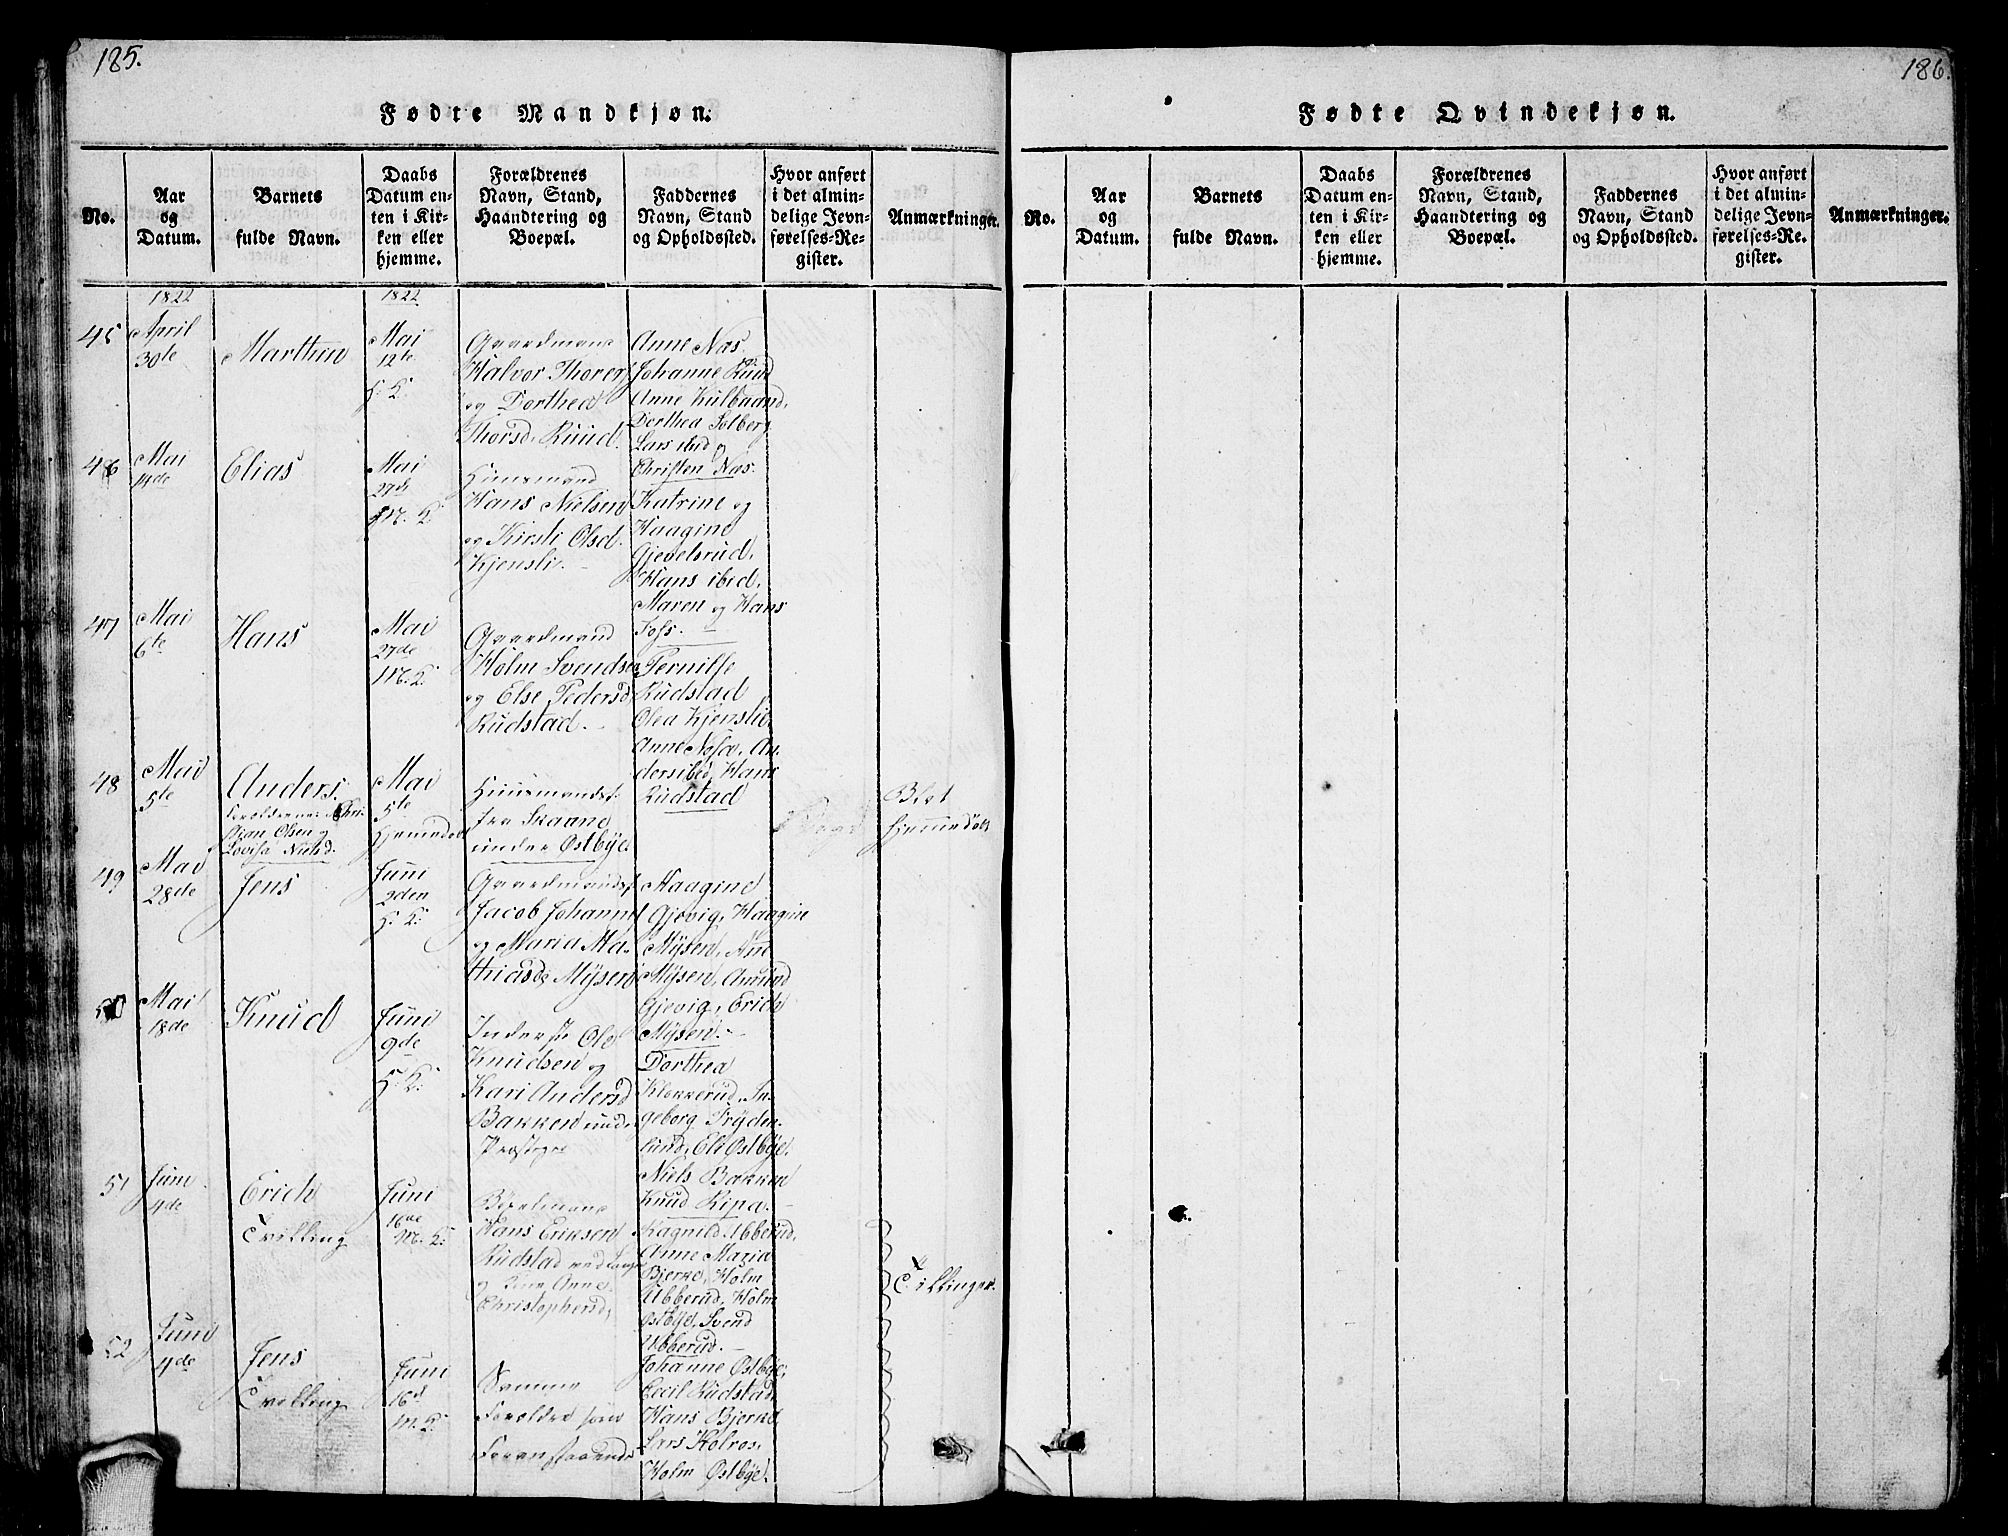 185.
Fødte Mandkjøn.
No.
Aar
og
Datum.
Barnets
fulde Navn.
Daabs
Datum en-
ten i Kir-
ken eller
hjemme.
Forældrenes
Navn, Stand,
Haandtering og
Boepæl.
Faddernes
Navn, Stand
og Opholdssted.
Hvor anført
i det almin-
delige Jevn-
førelses-Re-
gister.
Anmærkninger.
1822
1822
45
April
30te
Marthin
Mai
12te
H. K.
Gaardmand
Halvor Thorers
og Dorthea
Thorsd. Ruud.
Anne Nas.
Johanne Ruud
Anne Kulbaand,
Dorthea Solberg
Lars ibid og
Christen Nas.
46
Mai
14de
Elias
Mai
27de
M. K.
Huusmand
Hans Nielsen
og Kirsti Olsd.
Kjensli.
Katrine og
Haagine
Gjevelsrud,
Hans ibid,
Maren og Hans
Foss.
47
Mai
6te
Hans
Mai
27de
M. K.
Gaardmand
Holm Svendsen
og Else Pedersd
Rudstad.
Pernille
Rudstad
Olea Kjenslie,
Anne Foss, An-
ders ibid, Hans
Rudstad
48
Mai
5te
Anders.
Forældrene: Chri-
stian Olsen og
Lovisa Nielsd.
Mai
5te
Hjemmedøbt
Huusmandsf.
fra Skaane
under Østbye
Blot
hjemmedøbt
49
Mai
28de
Jens
Juni
2den
H. K.
Gaardmandsf.
Jacob Johannes
og Maria Ma-
thiasd. Mysen
Haagine
Gjøvig, Haagine
Mysen, Ane
Mysen, Amund
Gjøvig, Erich
Mysen.
50
Mai
18de
Knud
Juni
9de
H. K.
Inderste Ole
Knudsen og
Kari Andersd
Bakken under
Præstegd
Dorthea
Klokkerud, In-
geborg Fryden-
lund, Eli Østbye,
Niels Bakken
Knud Ripa.
51
Juni
4de
Erich
Tvilling
Juni
16de
M. K.
Bøxelmand
Hans Eriksen
Rudstad
og Kone Anne
Christophersd,
Ragnild Ubberud,
Anne Maria
Bjerke, Holm
Ubberud, Holm
Østbye, Svend
Ubberud.
Tvillinger.
52
Juni
4de
Jens
Tvilling
Juni
16de
M. K.
Samme
Forældre som
Foranstaaende
Johanne Østbye,
Cecil Rudstad,
Hans Bjerke,
Lars Kolros,
Holm Østbye.
186.
Fødte Qvindekjøn.
No.
Aar
og
Datum.
Barnets
fulde Navn.
Daabs
Datum en-
ten i Kir-
ken eller
hjemme.
Forældrenes
Navn, Stand,
Haandtering og
Boepæl.
Faddernes
Navn, Stand
og Opholdssted.
Hvor anført
i det almin-
delige Jevn-
førelses-Re-
gister.
Anmærkninger.